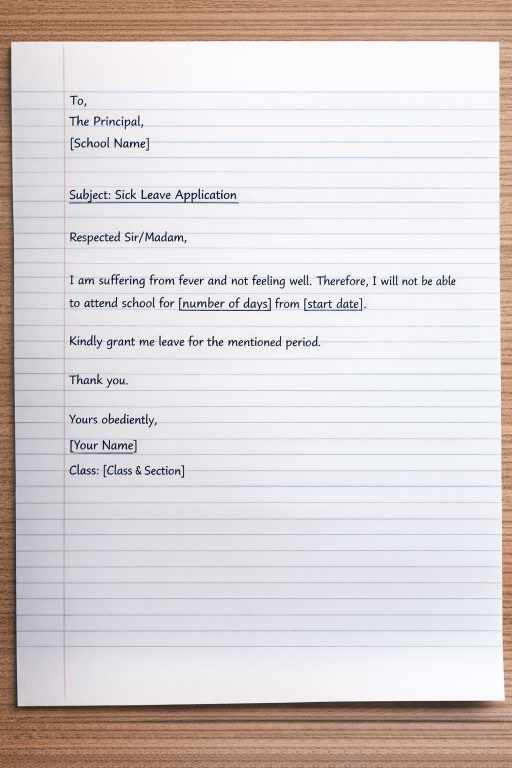 To,
The Principal,
[School Name]
Subject: Sick Leave Application
Respected Sir/Madam,
I am suffering from fever and not feeling well. Therefore, I will not be able
to attend school for [number of days] from [start date].
Kindly grant me leave for the mentioned period.
Thank you.
Yours obediently,
[Your Name]
Class: [Class & Section]